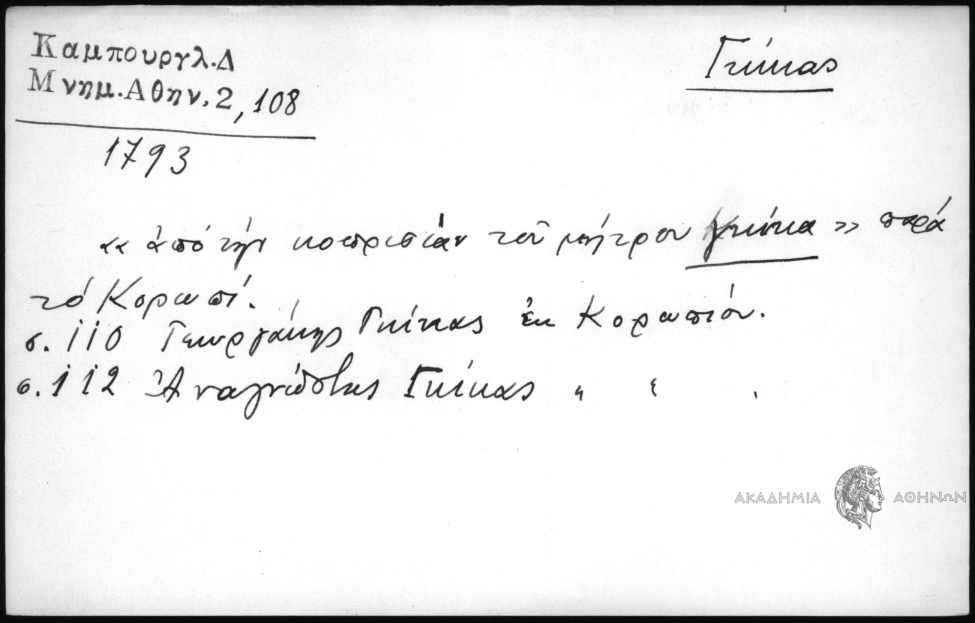 Καμπουργλ.Δ
Μνημ.Αθην.2,108
1793
Γκίκας
«ἀπὸ τὴν κοπρισιὰν τοῦ μήτρου γκίκα» παρὰ
τὸ Κορωπί.
σ.110 Γεωργάκης Γκίκας ἐκ Κορωπιοῦ.
σ.112 Ἀναγνώστης Γκίκας " " .
ΑΚΑΔΗΜΙΑ ΑΘΗΝΩΝ